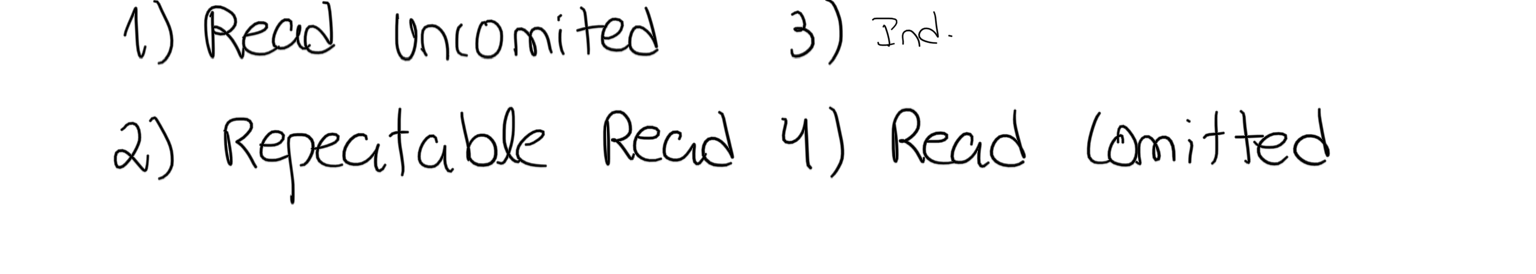 1) Read Uncomited 3) Ind.
2) Repeatable Read 4) Read Comitted